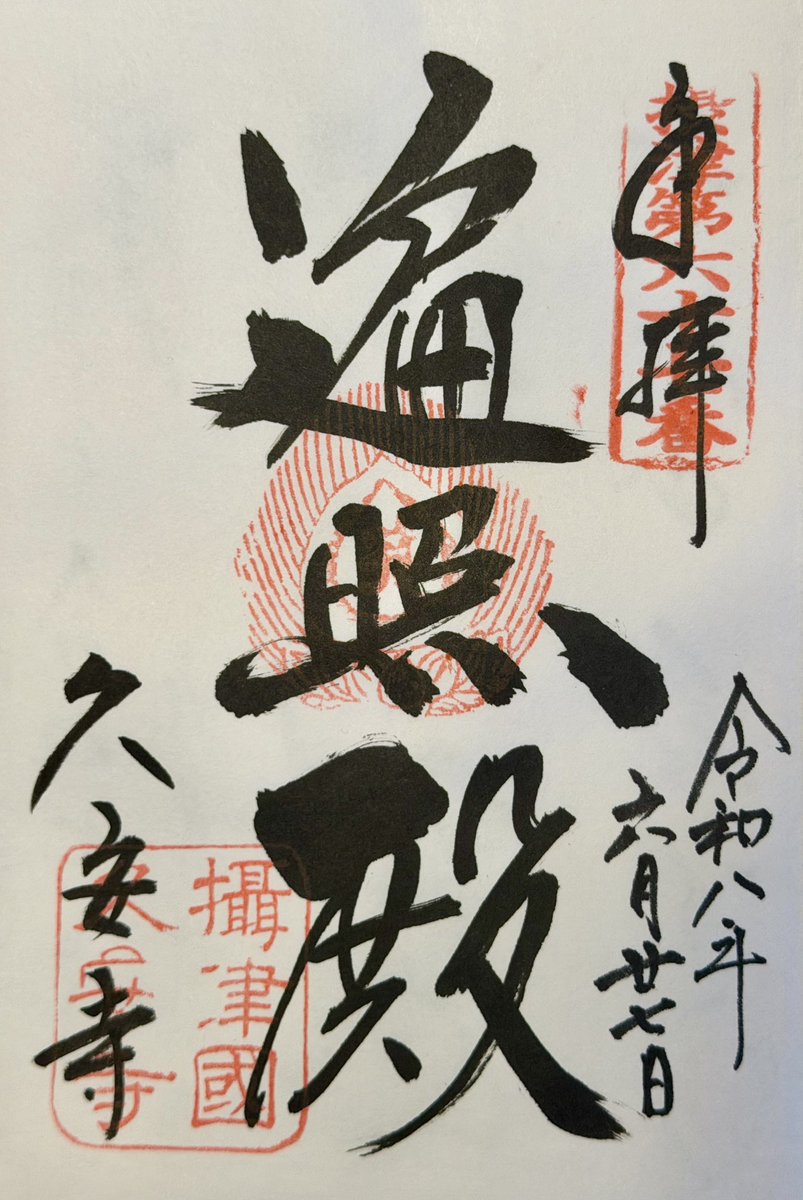 奉拝
攝津第六十
遍照殿
令和八年
六月廿七日
久安寺
攝津國